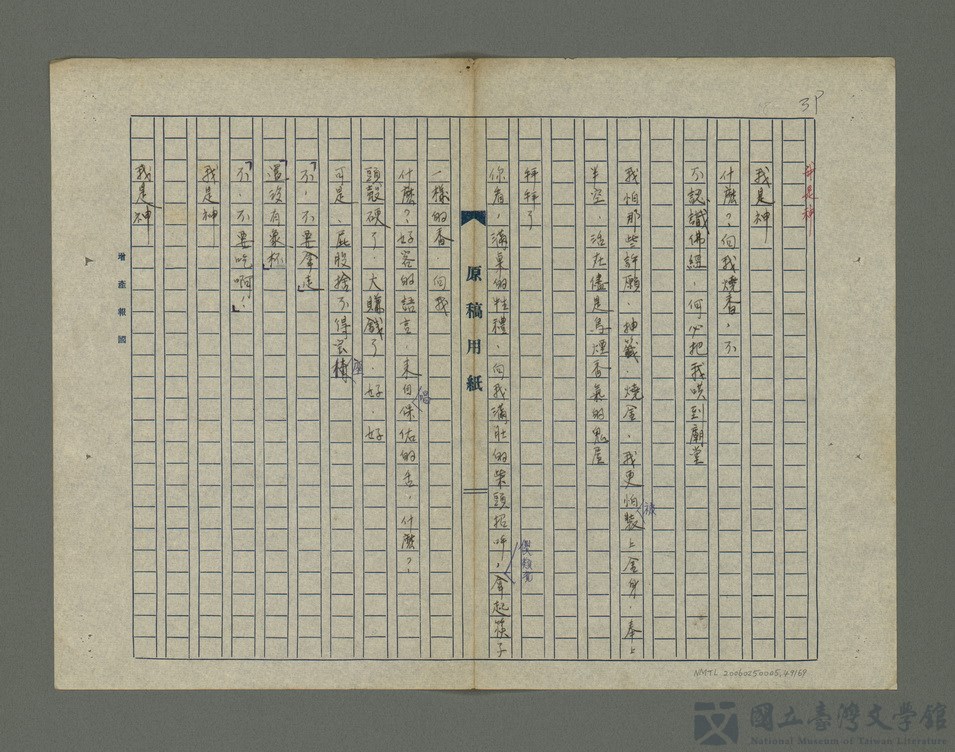 3P
我是神
我是神
什麼?向我燒香,不
不認識佛經,何必把我哄到廟堂
我怕那些許願、抽籤、燒金,我更怕被裝上金身,奉上
半空,活在儘是烏煙香氣的鬼屋
拜拜了
你看,滿桌的牲禮,向我滿肚的柴頭招呼,拿起筷子
原稿用紙
一樣的香,向我
什麼?好客的語言,來自保佑的舌,什麼?
頭殼硬了,大賺錢了,好,好
可是,屁股捨不得
「不,不要拿走」
「還沒有象杯」
「不,不要吃啊!」
我是神
我是神
增產報國
NMTL 20060250005.49/69
國立臺灣文學館
National Museum of Taiwan Literature